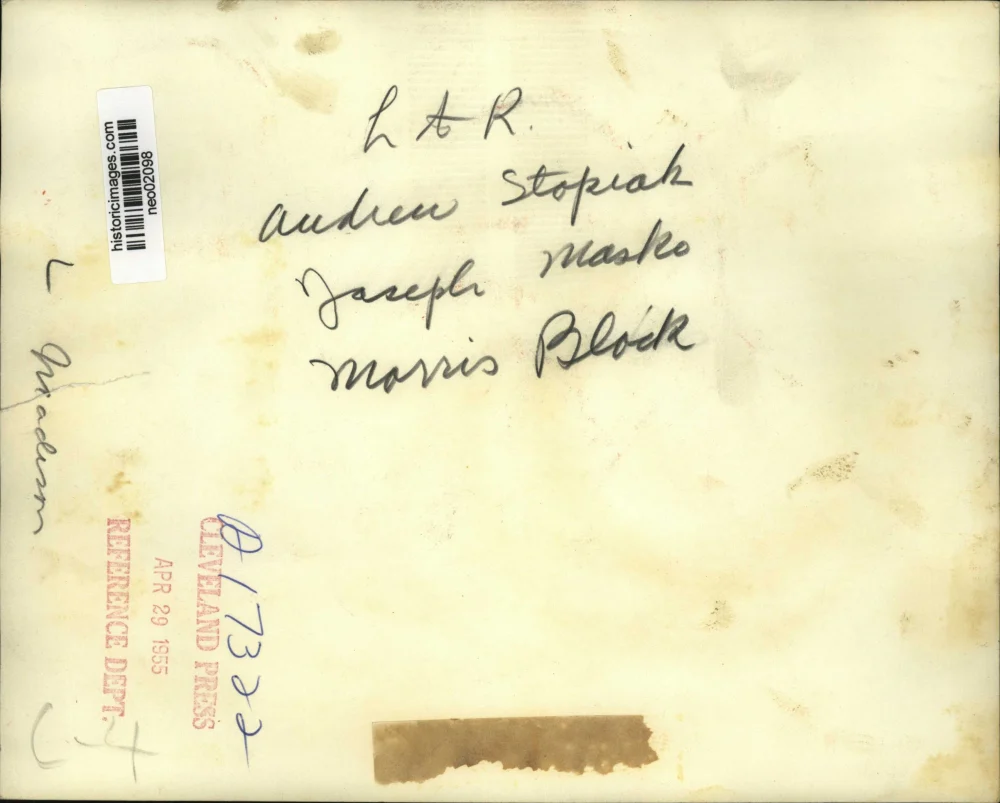 L to R.
Andrew Stopiak
Joseph Masko
Morris Block
historicimages.com
neo02098
L Madison
CLEVELAND PRESS
APR 29 1955
REFERENCE DEPT.
17322